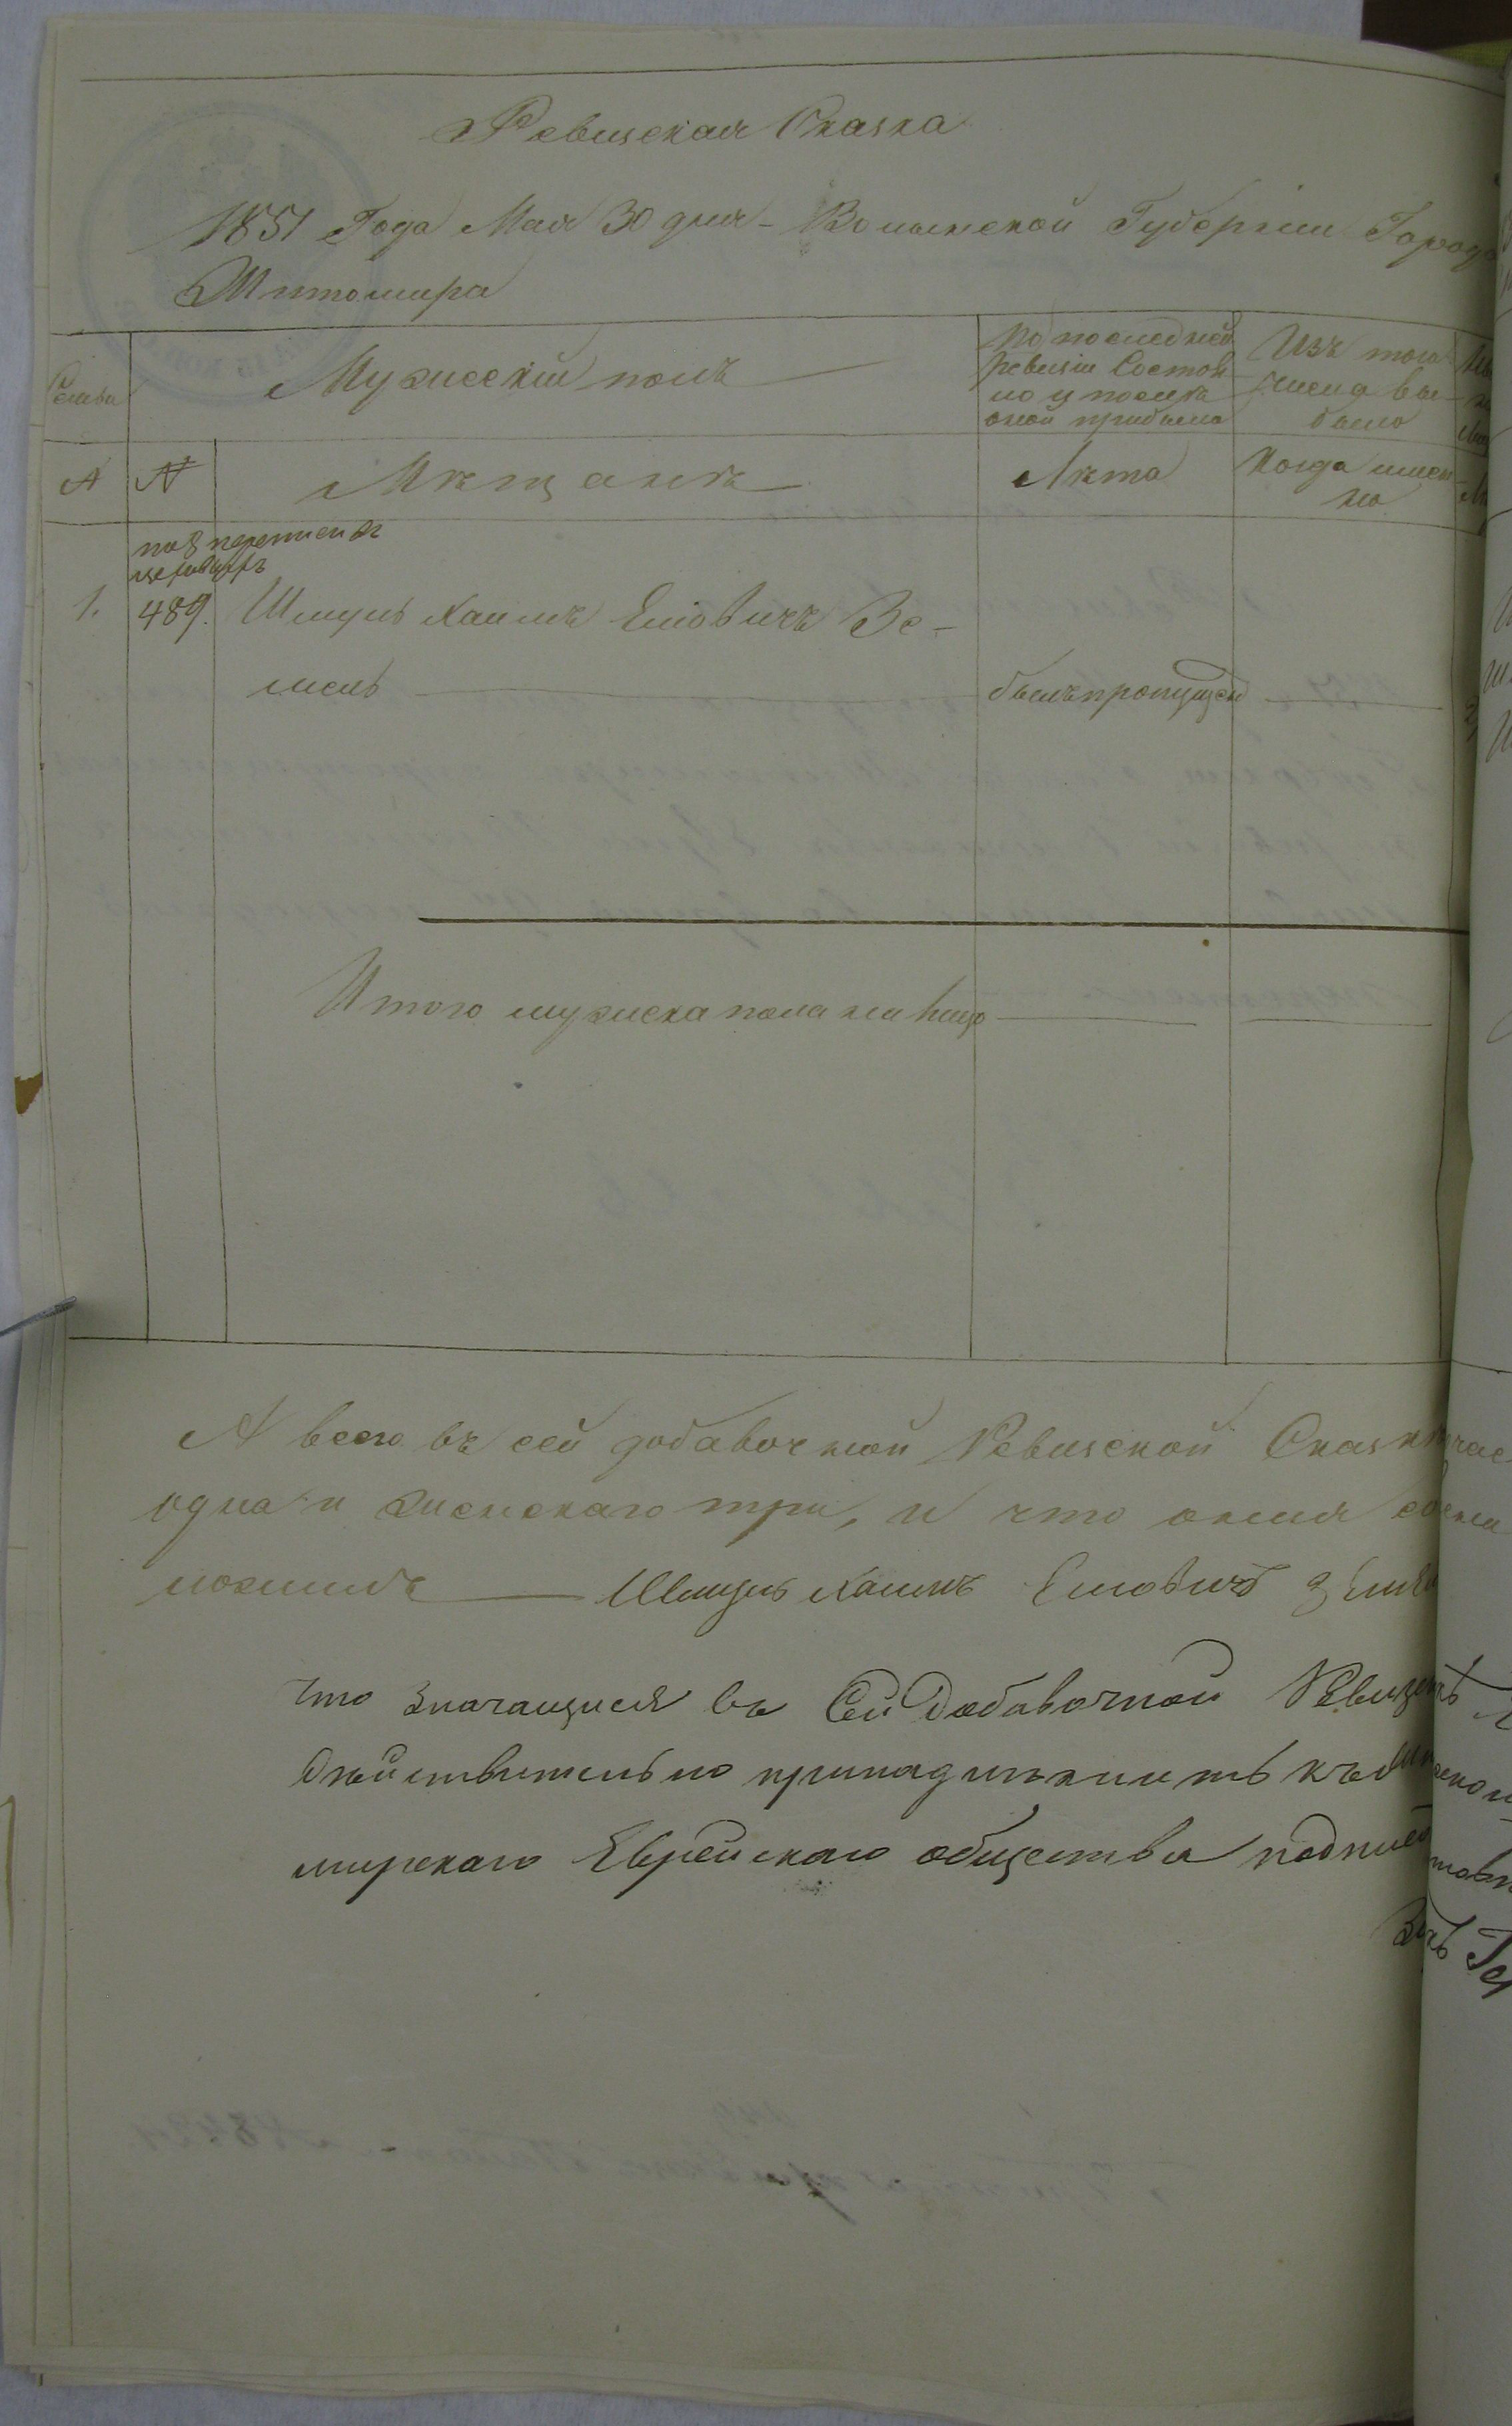 Ревизская Сказка
1851 Года Мая 30 дня - Волынской Губерніи Города
Житомира
Семьи
Мужескій полъ
По последней
ревизіи Состоя
ло и послѣ
оной прибыло
Изъ того
числа вы-
было
№
№
Мѣщанъ
Лѣта
Когда имен-
но
по 8 переписи
1.
489.
Шмуль Хаимъ Елiовичъ Зе-
мель
былъ пропущен
Итого мужеска пола на лицо
А всего въ сей добавочной Ревизской Сказкѣ
одна и женскаго три, и что оныя
Шмуль Хаимъ Елiовичъ
что значащиеся въ Сей Добавочной
действительно принадлежитъ къ
мирскаго Еврейскаго общества